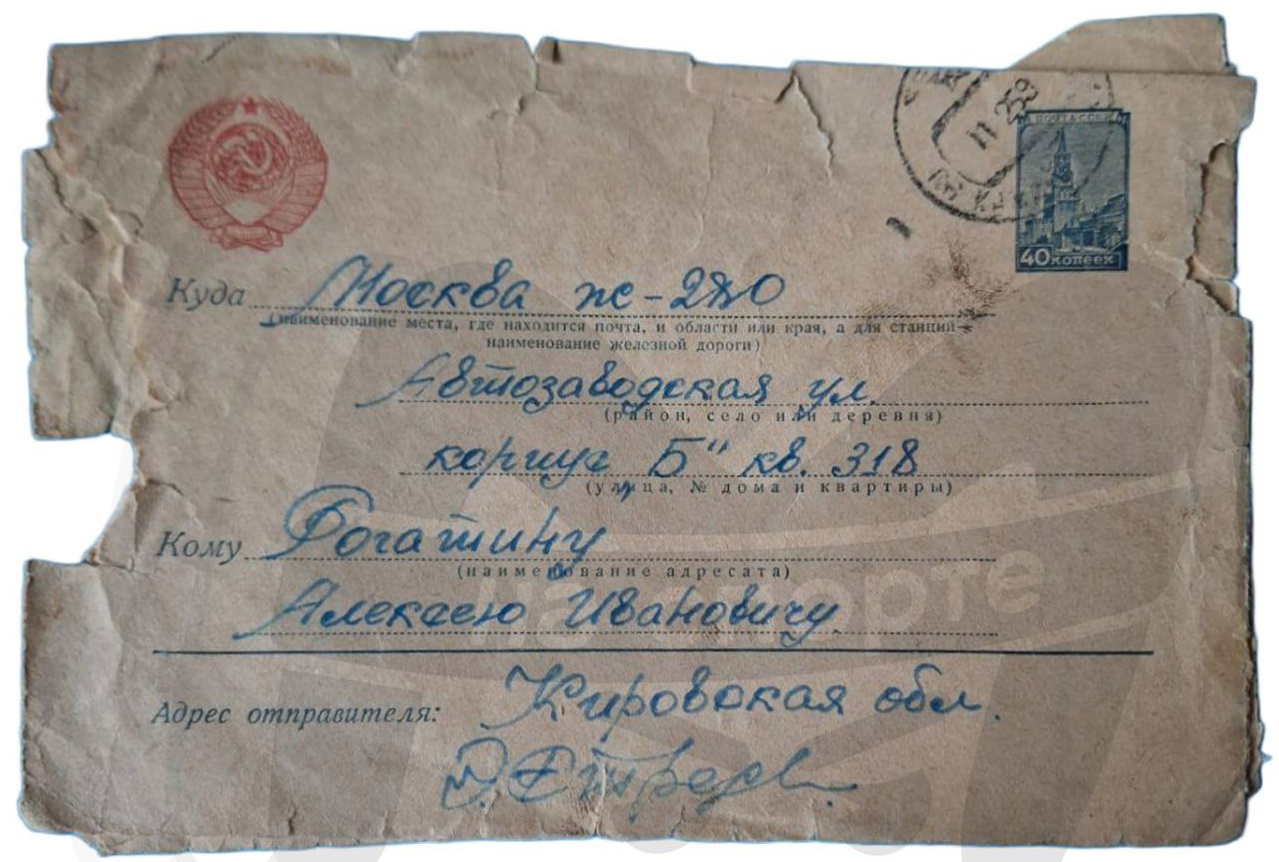 ПОЧТА СССР
11 258
40 копеек
Куда Москва ж-280
(наименование места, где находится почта, и области или края, а для станций—
наименование железной дороги)
Автозаводская ул.
(район, село или деревня)
корпус „Б“ кв. 318
(улица, № дома и квартиры)
Кому Рогатину
(наименование адресата)
Алексею Ивановичу
Адрес отправителя: Кировская обл.